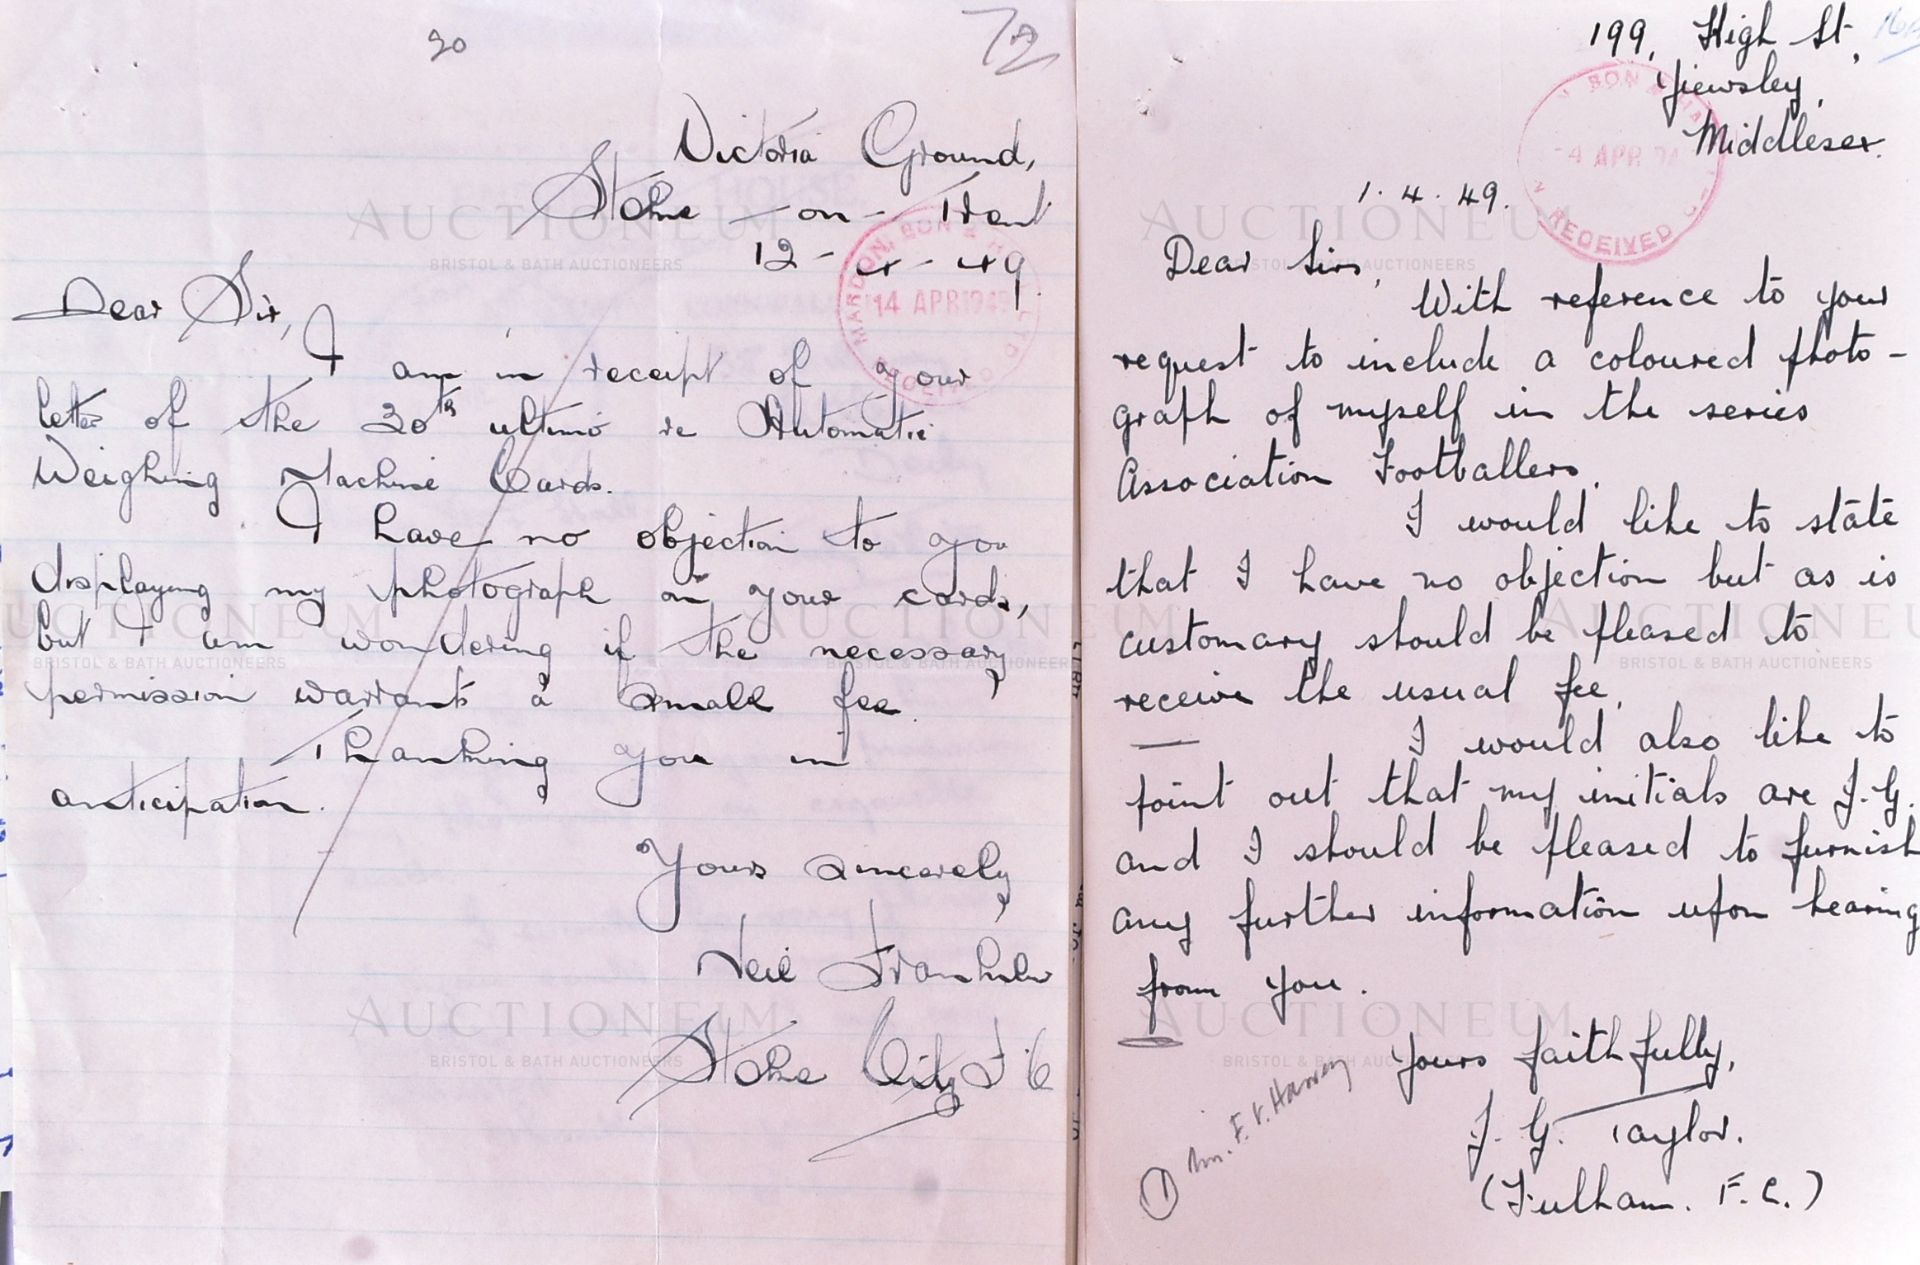 20
72
Victoria Ground,
Stoke - on - Trent
12 - 4 - 49.
MARDON, SON & HALL LTD
14 APR 1949
RECEIVED
Dear Sir,
I am in receipt of your
letter of the 30th ultimo re Automatic
Weighing Machine Cards.
I have no objection to you
displaying my photograph on your cards,
but I am wondering if the necessary
permission warrants a small fee.
Thanking you in
anticipation.
Yours sincerely
Neil Franklin
Stoke City F.C
199, High St,
Yiewsley,
Middlesex.
SON & HA
-4 APR
RECEIVED
1. 4. 49.
Dear Sirs,
With reference to your
request to include a coloured photo-
graph of myself in the series
Association Footballers.
I would like to state
that I have no objection but as is
customary should be pleased to
receive the usual fee.
I would also like to
point out that my initials are J.G.
and I should be pleased to furnish
any further information upon hearing
from you.
Yours faithfully,
J. G. Taylor.
(Fulham. F.C.)
1 Mr. F. V. Harvey
AUCTIONEUM
BRISTOL & BATH AUCTIONEERS